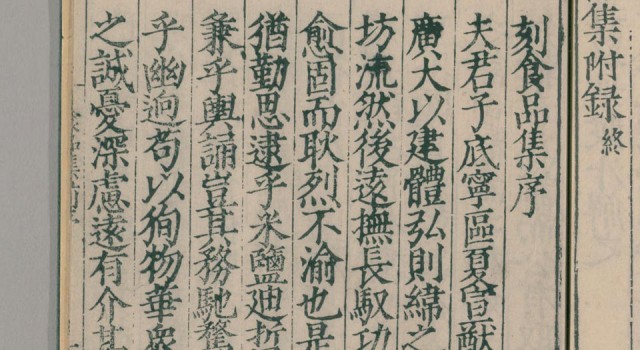 集附録終
刻食品集序
夫君子底寧區夏曽猷
廣大以建體弘則緯之
坊流然後遠撫長馭功
愈固而耿烈不渝也是
猶勤思逮乎米鹽廸折
兼乎輿誦豈其務馳騖
乎幽逈苟以徇物華衆
之誠憂深慮遠有介